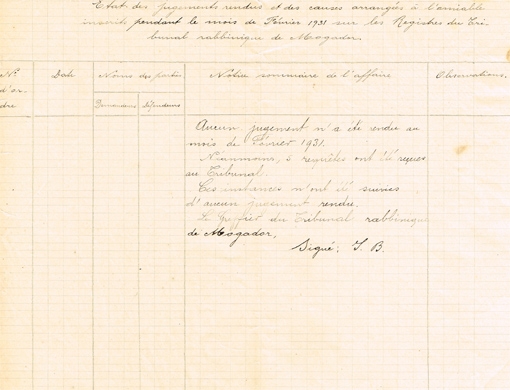 Etat des jugements rendus et des causes arrangées à l'amiable
inscrits pendant le mois de Février 1931 sur les Registres du Tri-
bunal rabbinique de Mogador.
N° d'or-dre
Date
Noms des parties
Demandeurs
Défendeurs
Notice sommaire de l'affaire
Observations.
Aucun jugement n'a été rendu au
mois de Février 1931.
Néanmoins, 5 requêtes ont été reçues
au Tribunal.
Ces instances n'ont été suivies
d'aucun jugement rendu.
Le Greffier du Tribunal rabbinique
de Mogador,
Signé: J. B.